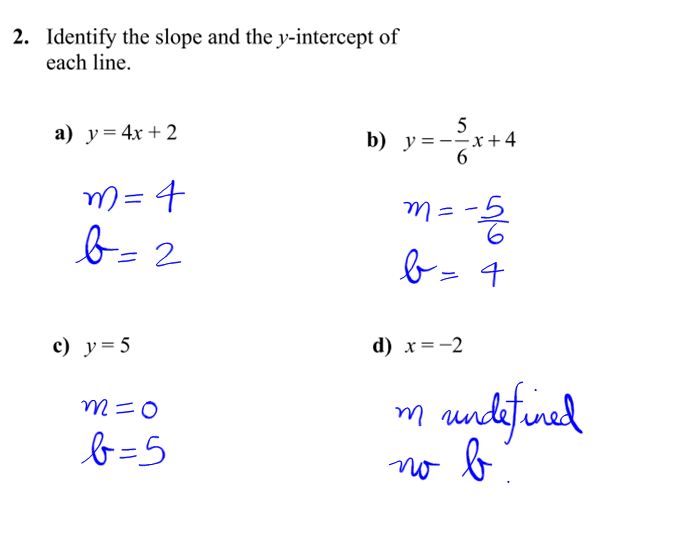 2. Identify the slope and the y-intercept of
each line.
a) y = 4x + 2
m = 4
b = 2
b) y = -5/6 x + 4
m = -5/6
b = 4
c) y = 5
m = 0
b = 5
d) x = -2
m undefined
no b.